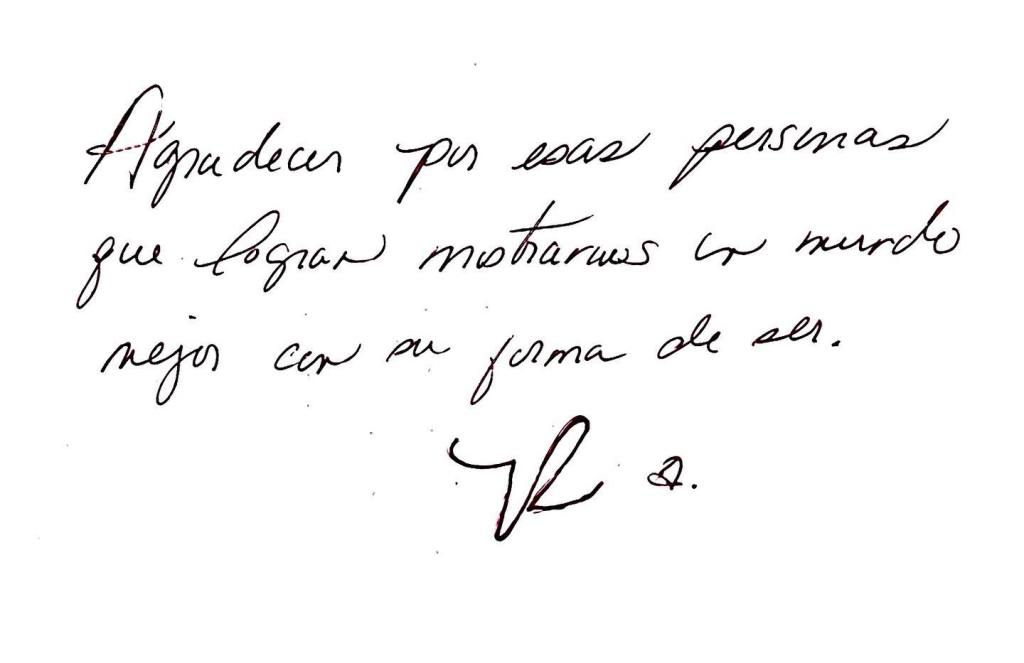 Agradecer por esas personas
que logran mostrarnos un mundo
mejor con su forma de ser.